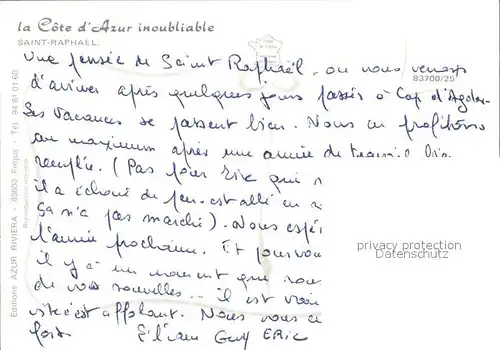 la Côte d'Azur inoubliable
SAINT-RAPHAËL
Une pensée de Saint Raphaël, où nous venons
83700/25
d'arriver après quelques jours passés à Cap d'Agde.
Les vacances se passent bien. Nous en profitons
au maximum après une année de travail bien
remplie. (Pas pour Eric qui
il a échoué de peu. est allé en
ça n'a pas marché). Nous
l'année prochaine. Et pour
il y a un moment que
de vos nouvelles -- il est
vite c'est affolant. Nous vous
fort Guy ERIC
Editions AZUR RIVIERA - 83600 Fréjus - Tél. 94 81 01 60
Reproduction interdite
privacy protection
Datenschutz